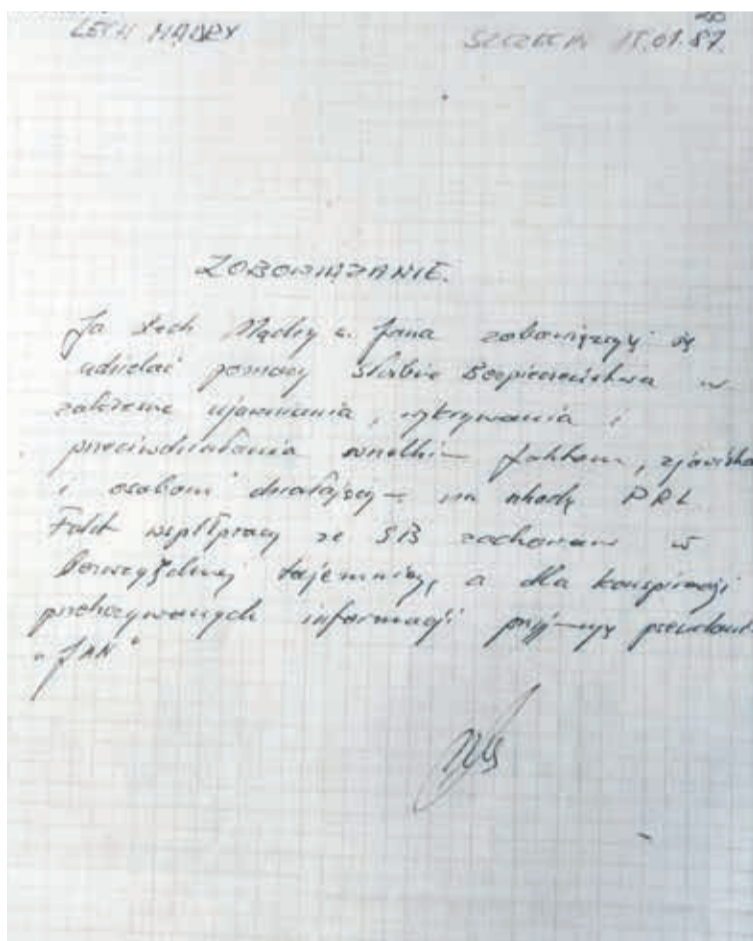 LECH MĄDRY SZCZECIN 15.01.87.
ZOBOWIĄZANIE.
Ja Lech Mądry s. Jana zobowiązuję się
udzielać pomocy Służbie Bezpieczeństwa w
zakresie ujawniania, wykrywania i
przeciwdziałania wszelkim faktom, zjawiskom
i osobom działającym na szkodę PRL
Fakt współpracy ze SB zachowam w
bezwzględnej tajemnicy, a dla konspiracji
przekazywanych informacji przyjmuję pseudonim
"JAN"